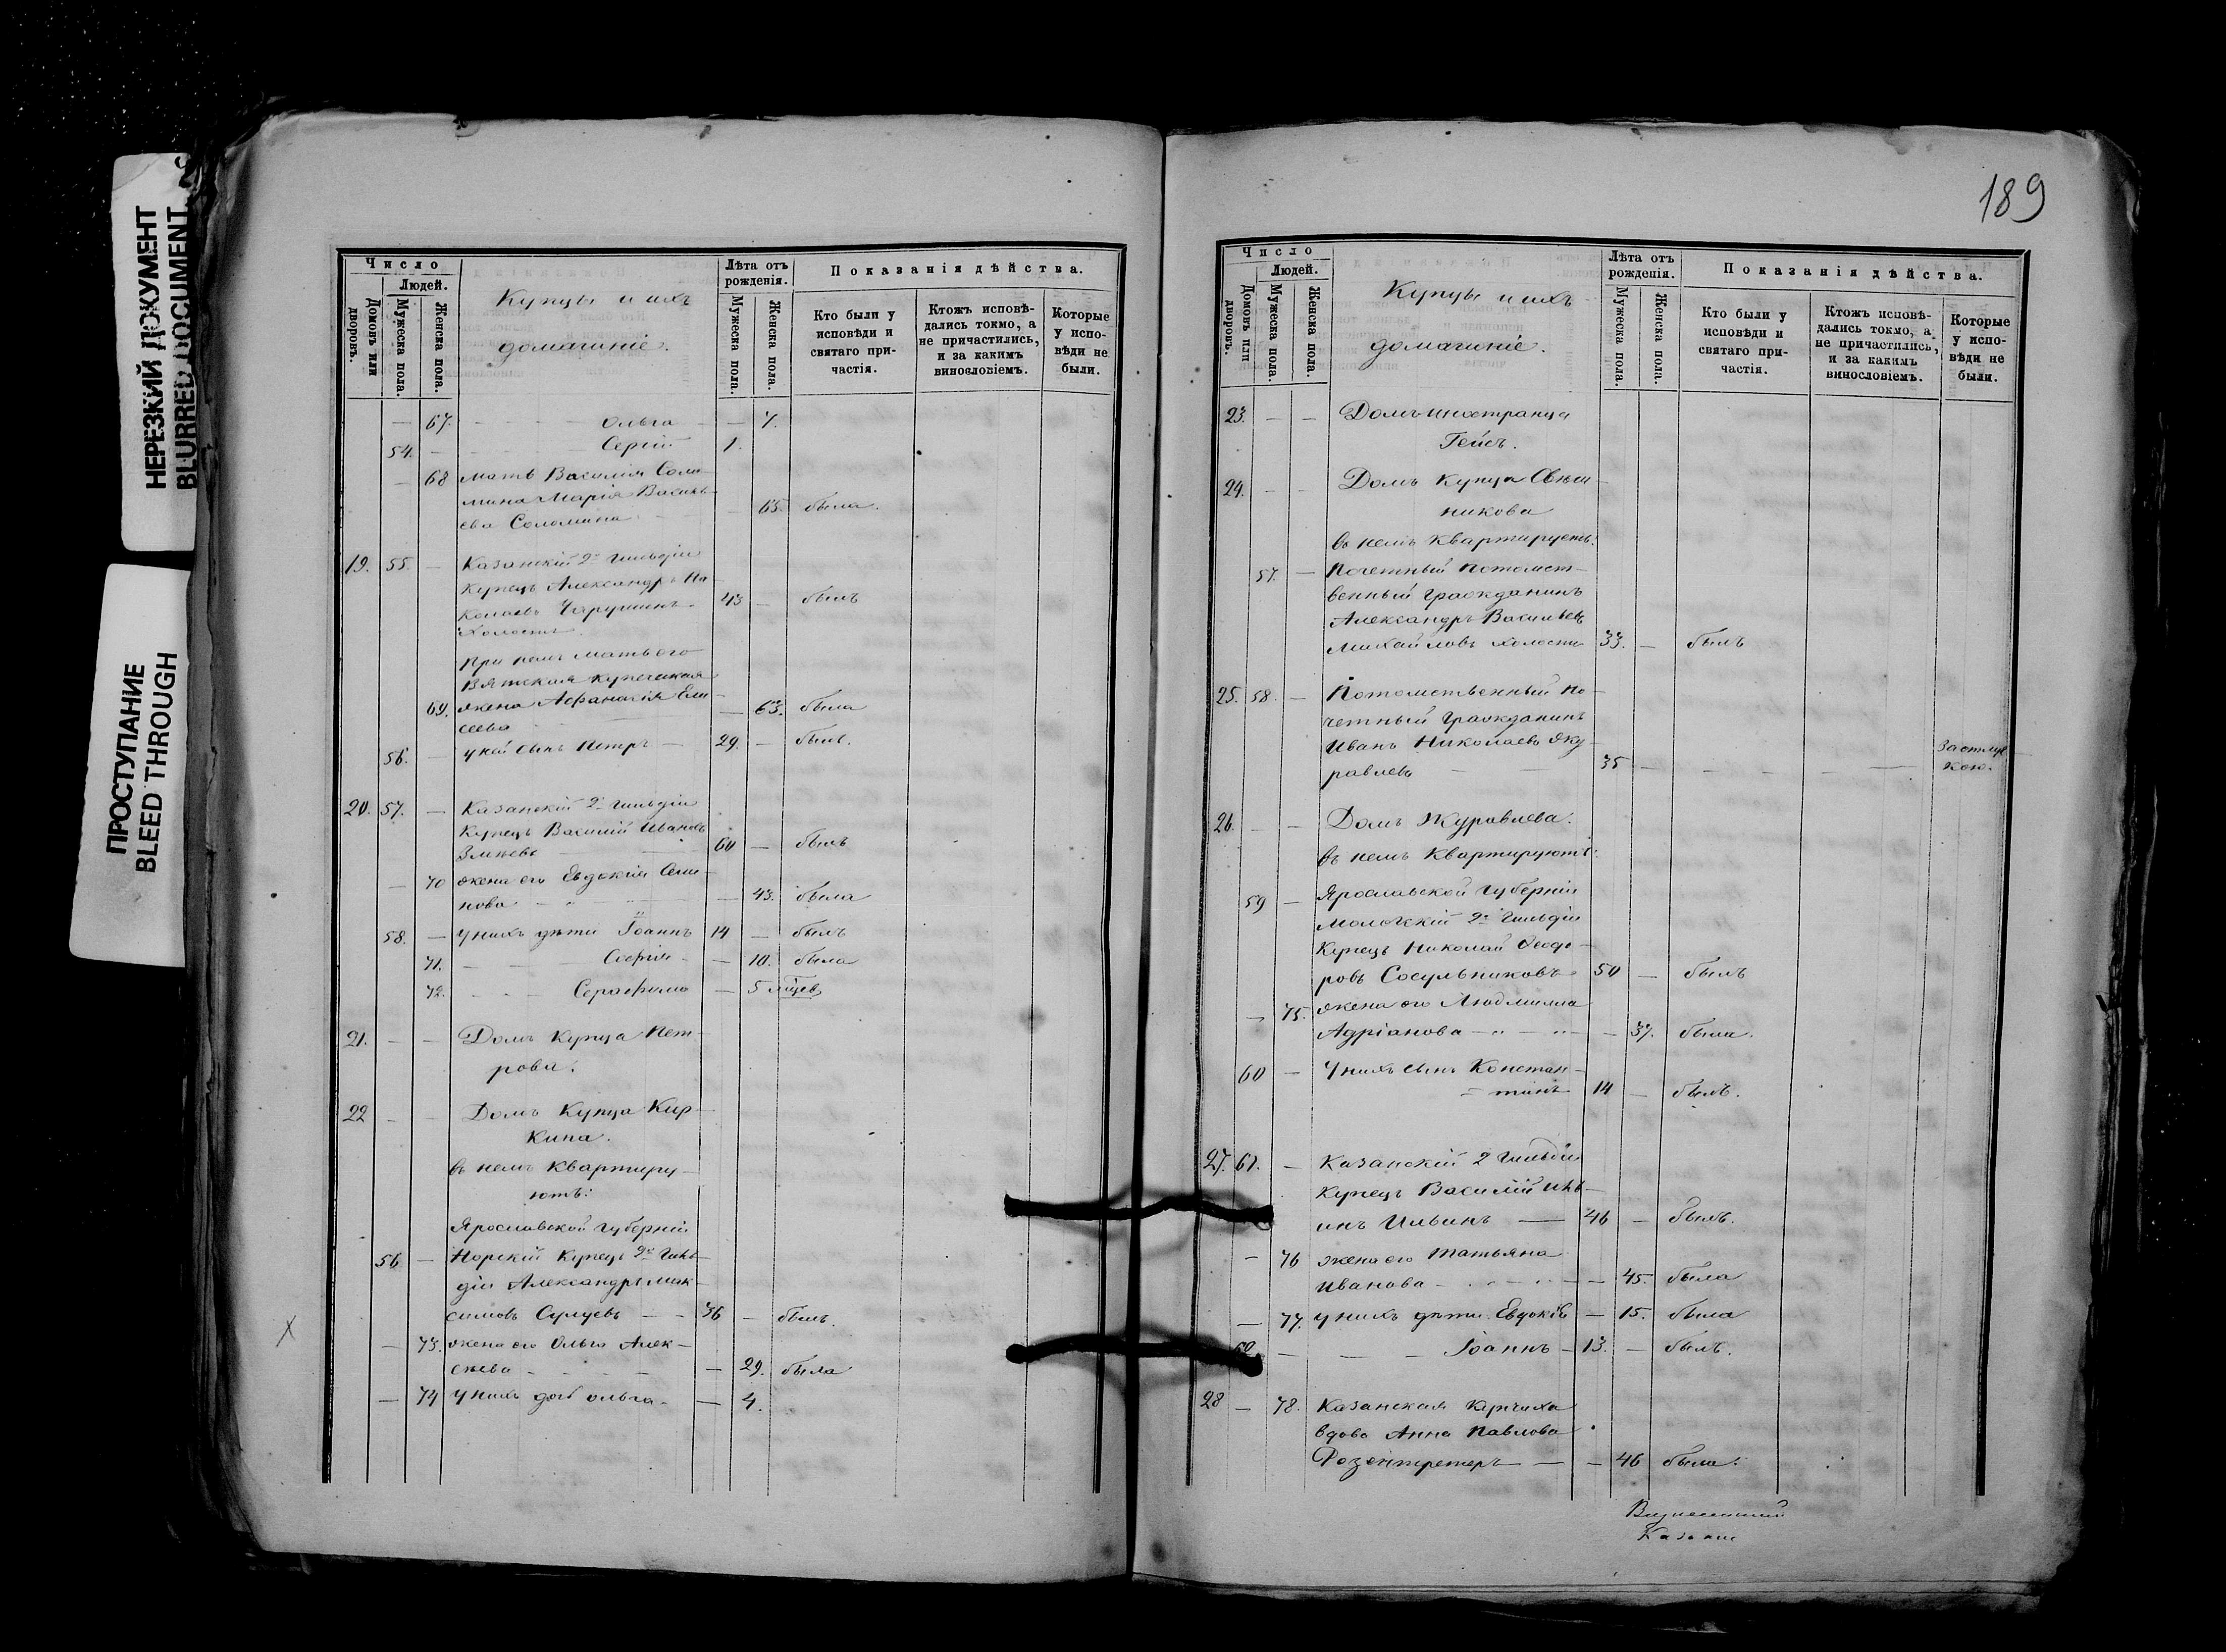 НЕРЕЗКИЙ ДОКУМЕНТ
BLURRED DOCUMENT
ПРОСТУПАНИЕ
BLEED THROUGH
Число
Людей.
Домовъ или дворовъ.
Мужеска пола.
Женска пола.
Купцы и ихъ
домашніе.
Лѣта отъ рожденія.
Мужеска пола.
Женска пола.
Показанія дѣйства.
Кто были у исповѣди и святаго причастія.
Ктожъ исповѣдались токмо, а не причастились, и за какимъ винословіемъ.
Которые у исповѣди не были.
— 67. Ольга — 7.
54. — Сергій 1.
— 68 мать Василія Соло-
мина Марія Василь-
ева Соломина — 65. была.
19. 55. — Казанскій 2й гильдіи
Купецъ Александръ Ни-
колаевъ Чарушинъ 43 — былъ
холостъ.
При немъ мать его
Вятская купеческая
69. жена Афанасія Ели- — 63. была
сеева
56. — у ней сынъ Петръ — 29. — былъ.
20. 57. — Казанскій 2й гильдіи
Купецъ Василій Ивановъ
Змѣевъ 60 — былъ
— 70 жена его Евдокія Семе-
нова — 43. была
58. — у нихъ дѣти Іоаннъ 14 — былъ
71. — Софія — 10. была
72. Серафима — 5
21. — — Домъ Купца Пет-
рова.
22 — — Домъ Купца Кир-
кина.
въ немъ квартиру-
ютъ:
Ярославской губерніи
56 — Норскій Купецъ 2й гиль-
діи Александръ Мак-
симовъ 36 — былъ.
— 73. жена его Ольга Алек-
сѣева — 29. была
— 74 у нихъ дочь Ольга — 4.
189
Число
Людей.
Домовъ или дворовъ.
Мужеска пола.
Женска пола.
Купцы и ихъ
домашніе.
Лѣта отъ рожденія.
Мужеска пола.
Женска пола.
Показанія дѣйства.
Кто были у исповѣди и святаго причастія.
Ктожъ исповѣдались токмо, а не причастились, и за какимъ винословіемъ.
Которые у исповѣди не были.
23. — — Домъ иностранца
Гейсъ.
24. — — Домъ Купца Свѣш-
никова
въ немъ квартируетъ:
57. — Почетный потомст-
венный гражданинъ
Александръ Васильевъ
Михайловъ холостъ 33. — былъ
25. 58. — Потомственный по-
четный гражданинъ
Иванъ Николаевъ Жу-
равлевъ 35 — — — За отлуч
кою.
26. — — Домъ Журавлева.
въ немъ квартируютъ:
59 — Ярославской губерніи
Моложскій 2й гильдіи
Купецъ Николай Феодо-
ровъ Сосульниковъ 50 — былъ
— 75. жена его Людмилла
Адріанова — 37. была.
60 — У нихъ сынъ Констан-
тинъ 14 — былъ.
27. 61. — Казанскій 2 гильдіи
Купецъ Василій Иль-
инъ Ильинъ — 46 — былъ.
— 76 жена его Татьяна
Иванова — 45. была
— 77. у нихъ дѣти Евдокія — 15. была
— Іоаннъ — 13. — былъ.
28 — 78. Казанская купчиха
вдова Анна Павлова
Розентретеръ — 46 была.